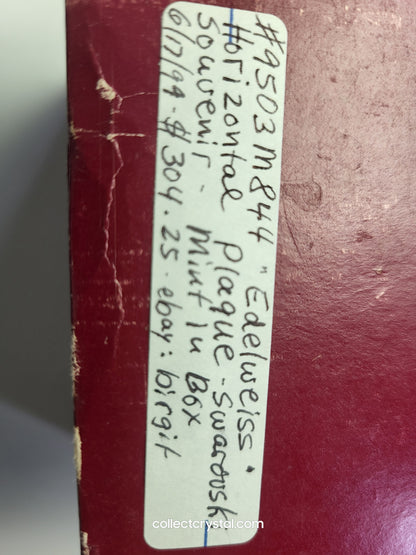 #9503M844 "Edelweiss"
Horizontal plaque - Swarovski
Souvenir - Mint in Box
6/17/99 - $304.25 - ebay: birgit
collectcrystal.com